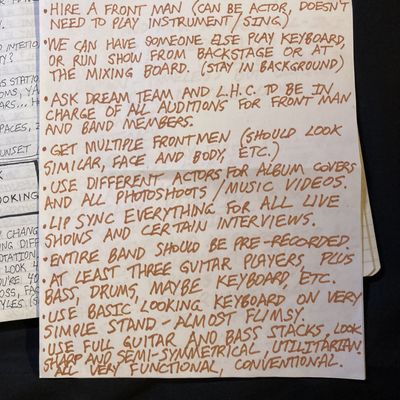 • HIRE A FRONT MAN (CAN BE ACTOR, DOESN'T
NEED TO PLAY INSTRUMENT/SING.)
• WE CAN HAVE SOMEONE ELSE PLAY KEYBOARD,
OR RUN SHOW FROM BACKSTAGE OR AT
THE MIXING BOARD. (STAY IN BACKGROUND)
• ASK DREAM TEAM AND L.H.C. TO BE IN
CHARGE OF ALL AUDITIONS FOR FRONT MAN
AND BAND MEMBERS.
• GET MULTIPLE FRONTMEN (SHOULD LOOK
SIMILAR, FACE AND BODY, ETC.)
• USE DIFFERENT ACTORS FOR ALBUM COVERS
AND ALL PHOTOSHOOTS / MUSIC VIDEOS.
• LIP SYNC EVERYTHING FOR ALL LIVE
SHOWS AND CERTAIN INTERVIEWS.
• ENTIRE BAND SHOULD BE PRE-RECORDED.
• AT LEAST THREE GUITAR PLAYERS, PLUS
BASS, DRUMS, MAYBE KEYBOARD, ETC.
• USE BASIC LOOKING KEYBOARD ON VERY
SIMPLE STAND - ALMOST FLIMSY.
• USE FULL GUITAR AND BASS STACKS, LOOK
SHARP AND SEMI-SYMMETRICAL, UTILITARIAN.
ALL VERY FUNCTIONAL, CONVENTIONAL.
SUNSET
OKING